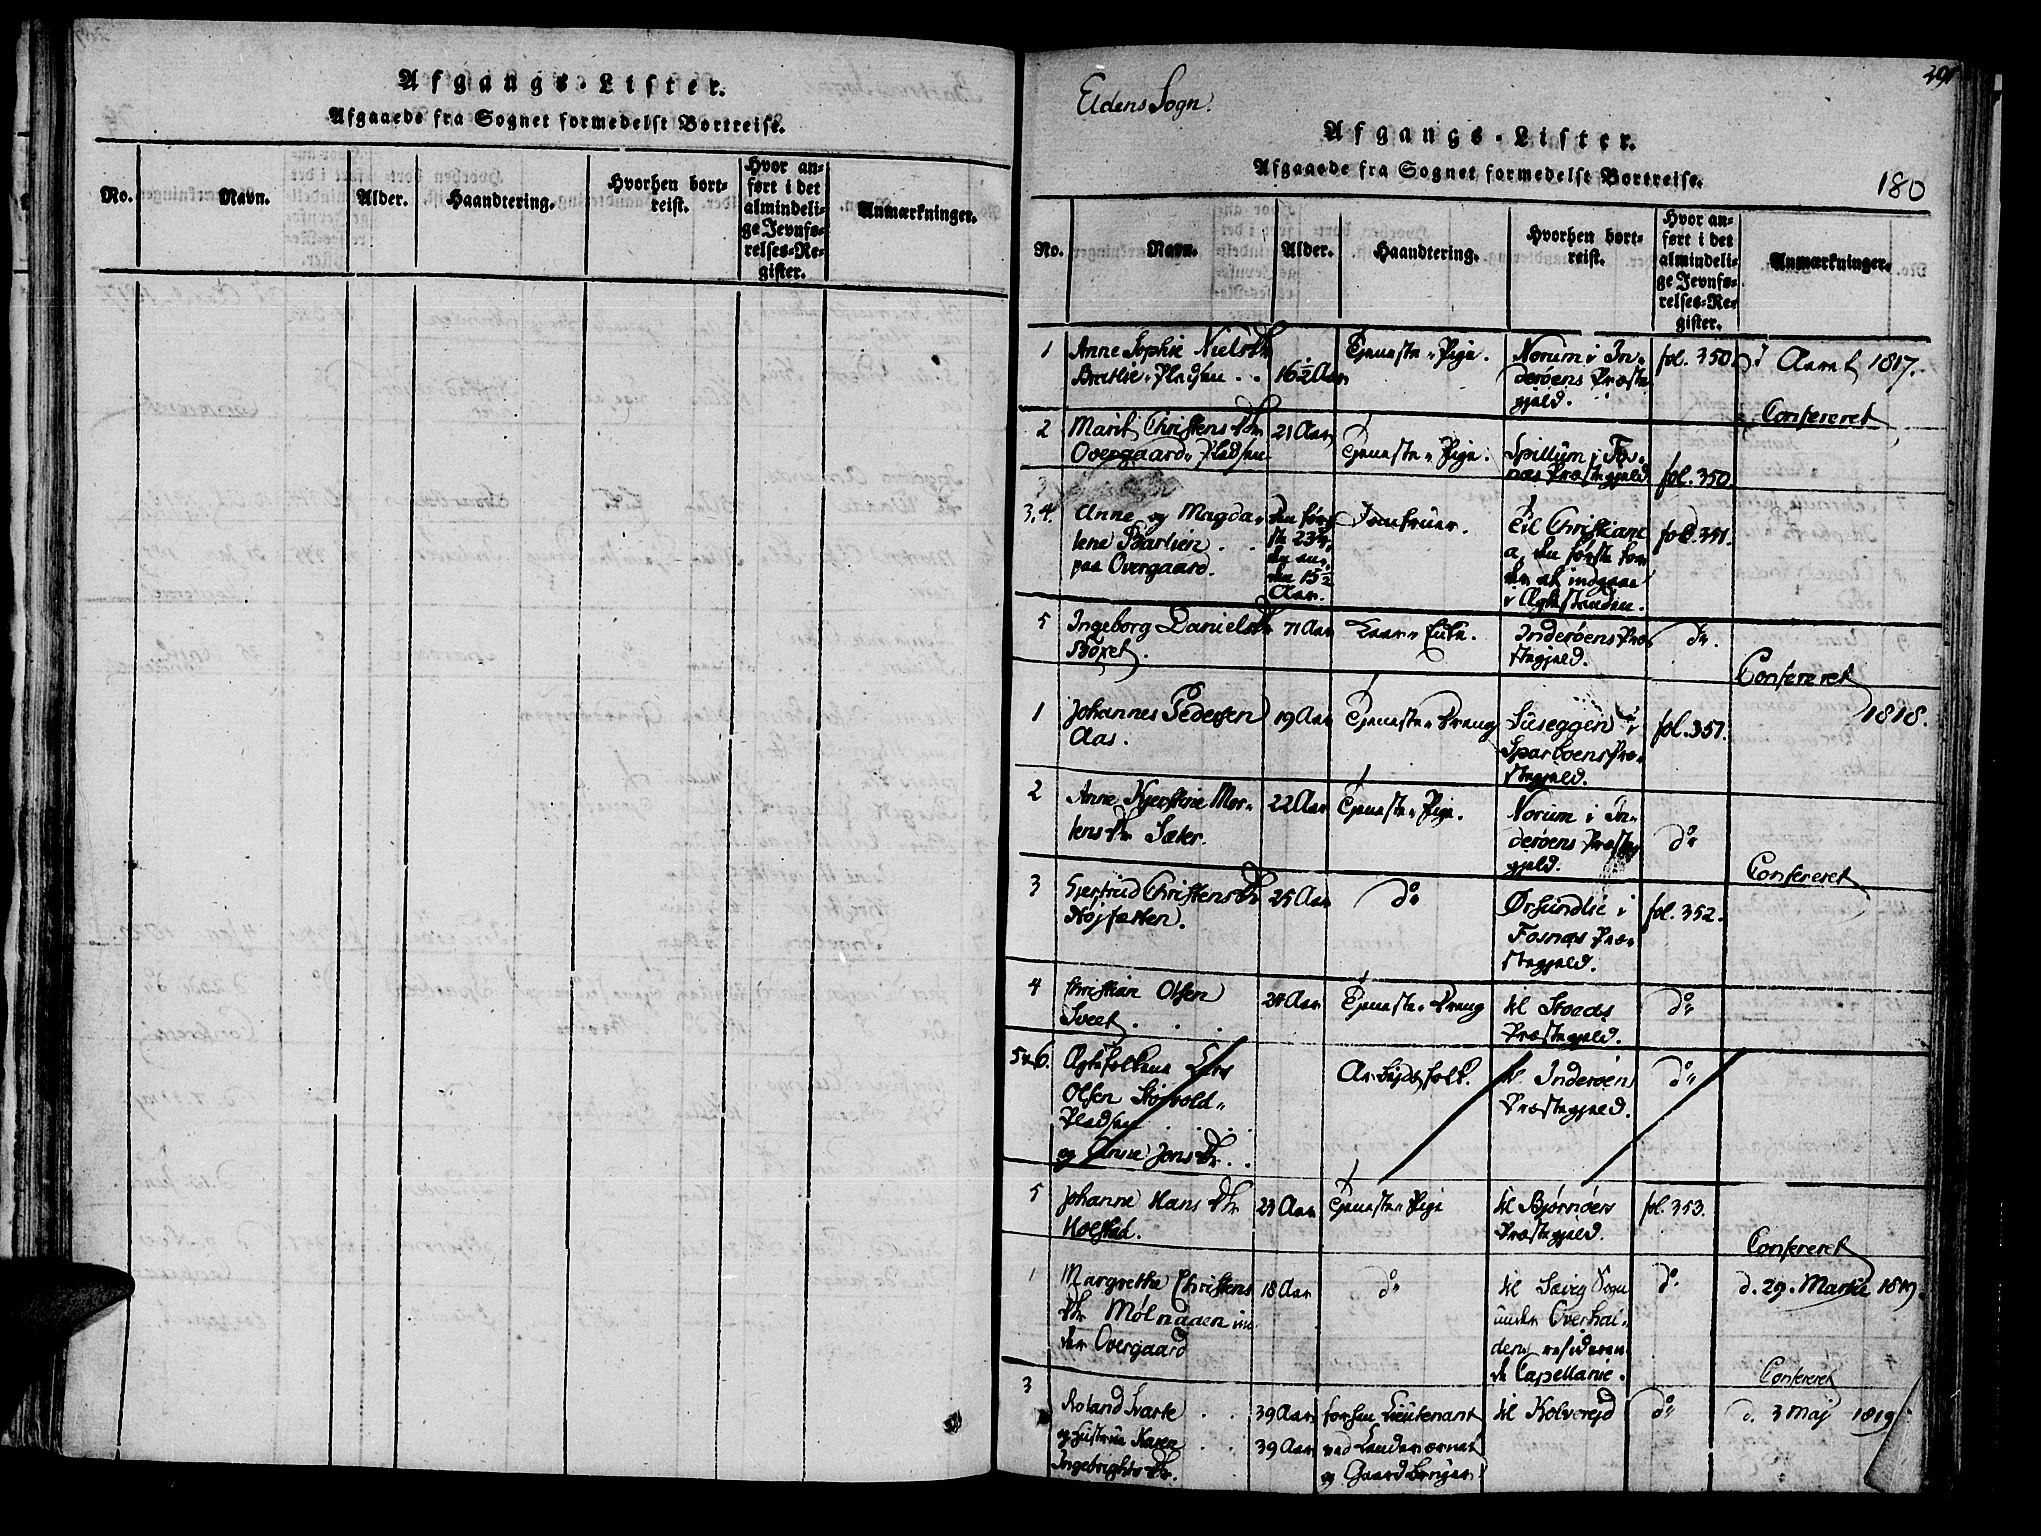 Afgangs-Lister.
Afgaaede fra Sognet formedelst Bortreise.
No.
Navn.
Alder.
Haandtering.
Hvorhen bort-
reist.
Hvor an-
ført i det
almindeli-
ge Jevnfø-
relses-Re-
gister.
Anmærkninger.
291
Eldens Sogn.
Afgangs-Lister.
Afgaaede fra Sognet formedelst Bortreise.
180
No.
Navn.
Alder.
Haandtering.
Hvorhen bort-
reist.
Hvor an-
ført i det
almindeli-
ge Jevnfø-
relses-Re-
gister.
Anmærkninger.
1
Anne Sophie Nielsdtr
Bratlie-Pladsen . .
16 1/2 Aar
Tjeneste-Pige.
Norum i In-
derøens Præste
gjeld.
fol. 350.
I Aaret 1817.
Confereret
2
Marit Christensdtr
Overgaards-Pladsen
21 Aar
Tjeneste-Pige.
Spillum i Fos-
næs Præstegjeld
fol. 350.
3, 4.
Anne og Magda-
lene Barlien . .
paa Overgaard.
den før-
ste 23 1/2,
den an-
den 15 1/2
Aar.
Jomfruer.
til Christiani
a, den første for
der at indgaae
i Ægtestanden.
fol. 351.
5
Ingeborg Danielsdtr
Bøxet.
71 Aar
Inderøens Præ-
stegjeld.
do.
Confereret
1
Johannes Pedersen
Aas.
19 Aar
Tjeneste-Dreng
Suseggen i
Sparboens Præ-
stegjeld.
fol. 351.
1818.
2
Anne Kjerstine Mor-
tensdtr Sæter.
22 Aar
Tjeneste-Pige.
Norum i In-
derøens Præste
gjeld.
do
Confereret
3
Gjertrud Christensdtr
Højtasten.
25 Aar
do
Ørsundlie i
Fosnæs Præ-
stegjeld.
fol. 352.
4
Christian Olsen
Sveet . . .
24 Aar
Tjeneste-Dreng
til Stoeds
Præstegjeld.
do
5 & 6.
Ægtefolkene Lars
Olsen Storvold-
Pladsen . . . .
og Anne Jonsdtr. .
Arbejdsfolk.
til Inderøens
Præstegjeld.
do
5
Johanne Hansdtr
Holstad.
23 Aar
Tjeneste-Pige
til Bjørnøers
Præstegjeld.
fol. 353.
Confereret
1
Margrethe Christens
dtr Mølnaaen un
der Overgaard
18 Aar
do
til Særig Sogn
under Overhal-
dens resideren
de Capellanie.
do
d. 29. Martii 1819.
Confereret
3
Roland Svarte . .
og Hustrue Karen . .
Ingebrigtsdtr.
39 Aar
39 Aar
forhen Lieutenant
ved Landeværnet
og Gaardbruger
til Kolvereid
do
d. 3 Maj 1819